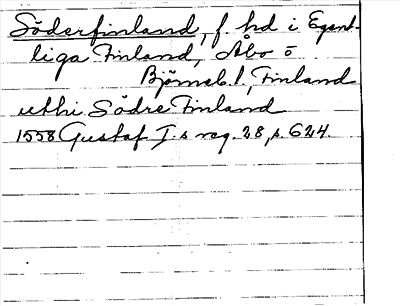 Söderfinland, f. hd i Egent-
liga Finland, Åbo o
Björneb. l., Finland
uthi Södre Finland
1558 Gustaf I:s reg. 28, s. 624.